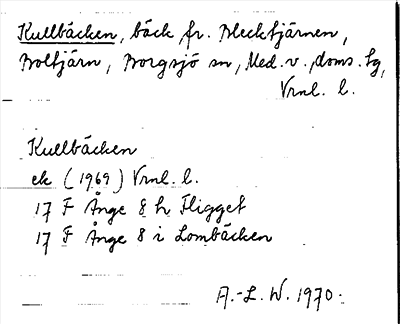 Kullbäcken, bäck fr. Blecktjärnen,
Boltjärn, Borgsjö sn, Med. v. doms. tg,
Vrnl. l.
Kullbäcken
ek (1969) Vrnl. l.
17 F Ånge 8 h Fligget
17 F Ånge 8 i Lombäcken
A.-L. W. 1970.